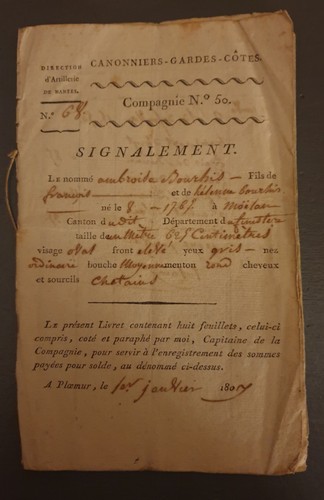 DIRECTION
d'Artillerie
DE NANTES.
N.° 68.
CANONNIERS-GARDES-CÔTES.
Compagnie N.° 50.
SIGNALEMENT.
LE nommé ambroise Bourhis — Fils de
françois — et de hélenne bourhis
né le 8 - 1765 à Moëlan
Canton dudit Département du finistere
taille d'un Mètre 625 Centimètres
visage oval front élevé yeux gris — nez
ordinaire bouche Moyenne menton rond cheveux
et sourcils Chatains
LE présent Livret contenant huit feuillets, celui-ci
compris, coté et paraphé par moi, Capitaine de la
Compagnie, pour servir à l'enregistrement des sommes
payées pour solde, au dénommé ci-dessus.
A Plœmur, le 1er janvier 1807